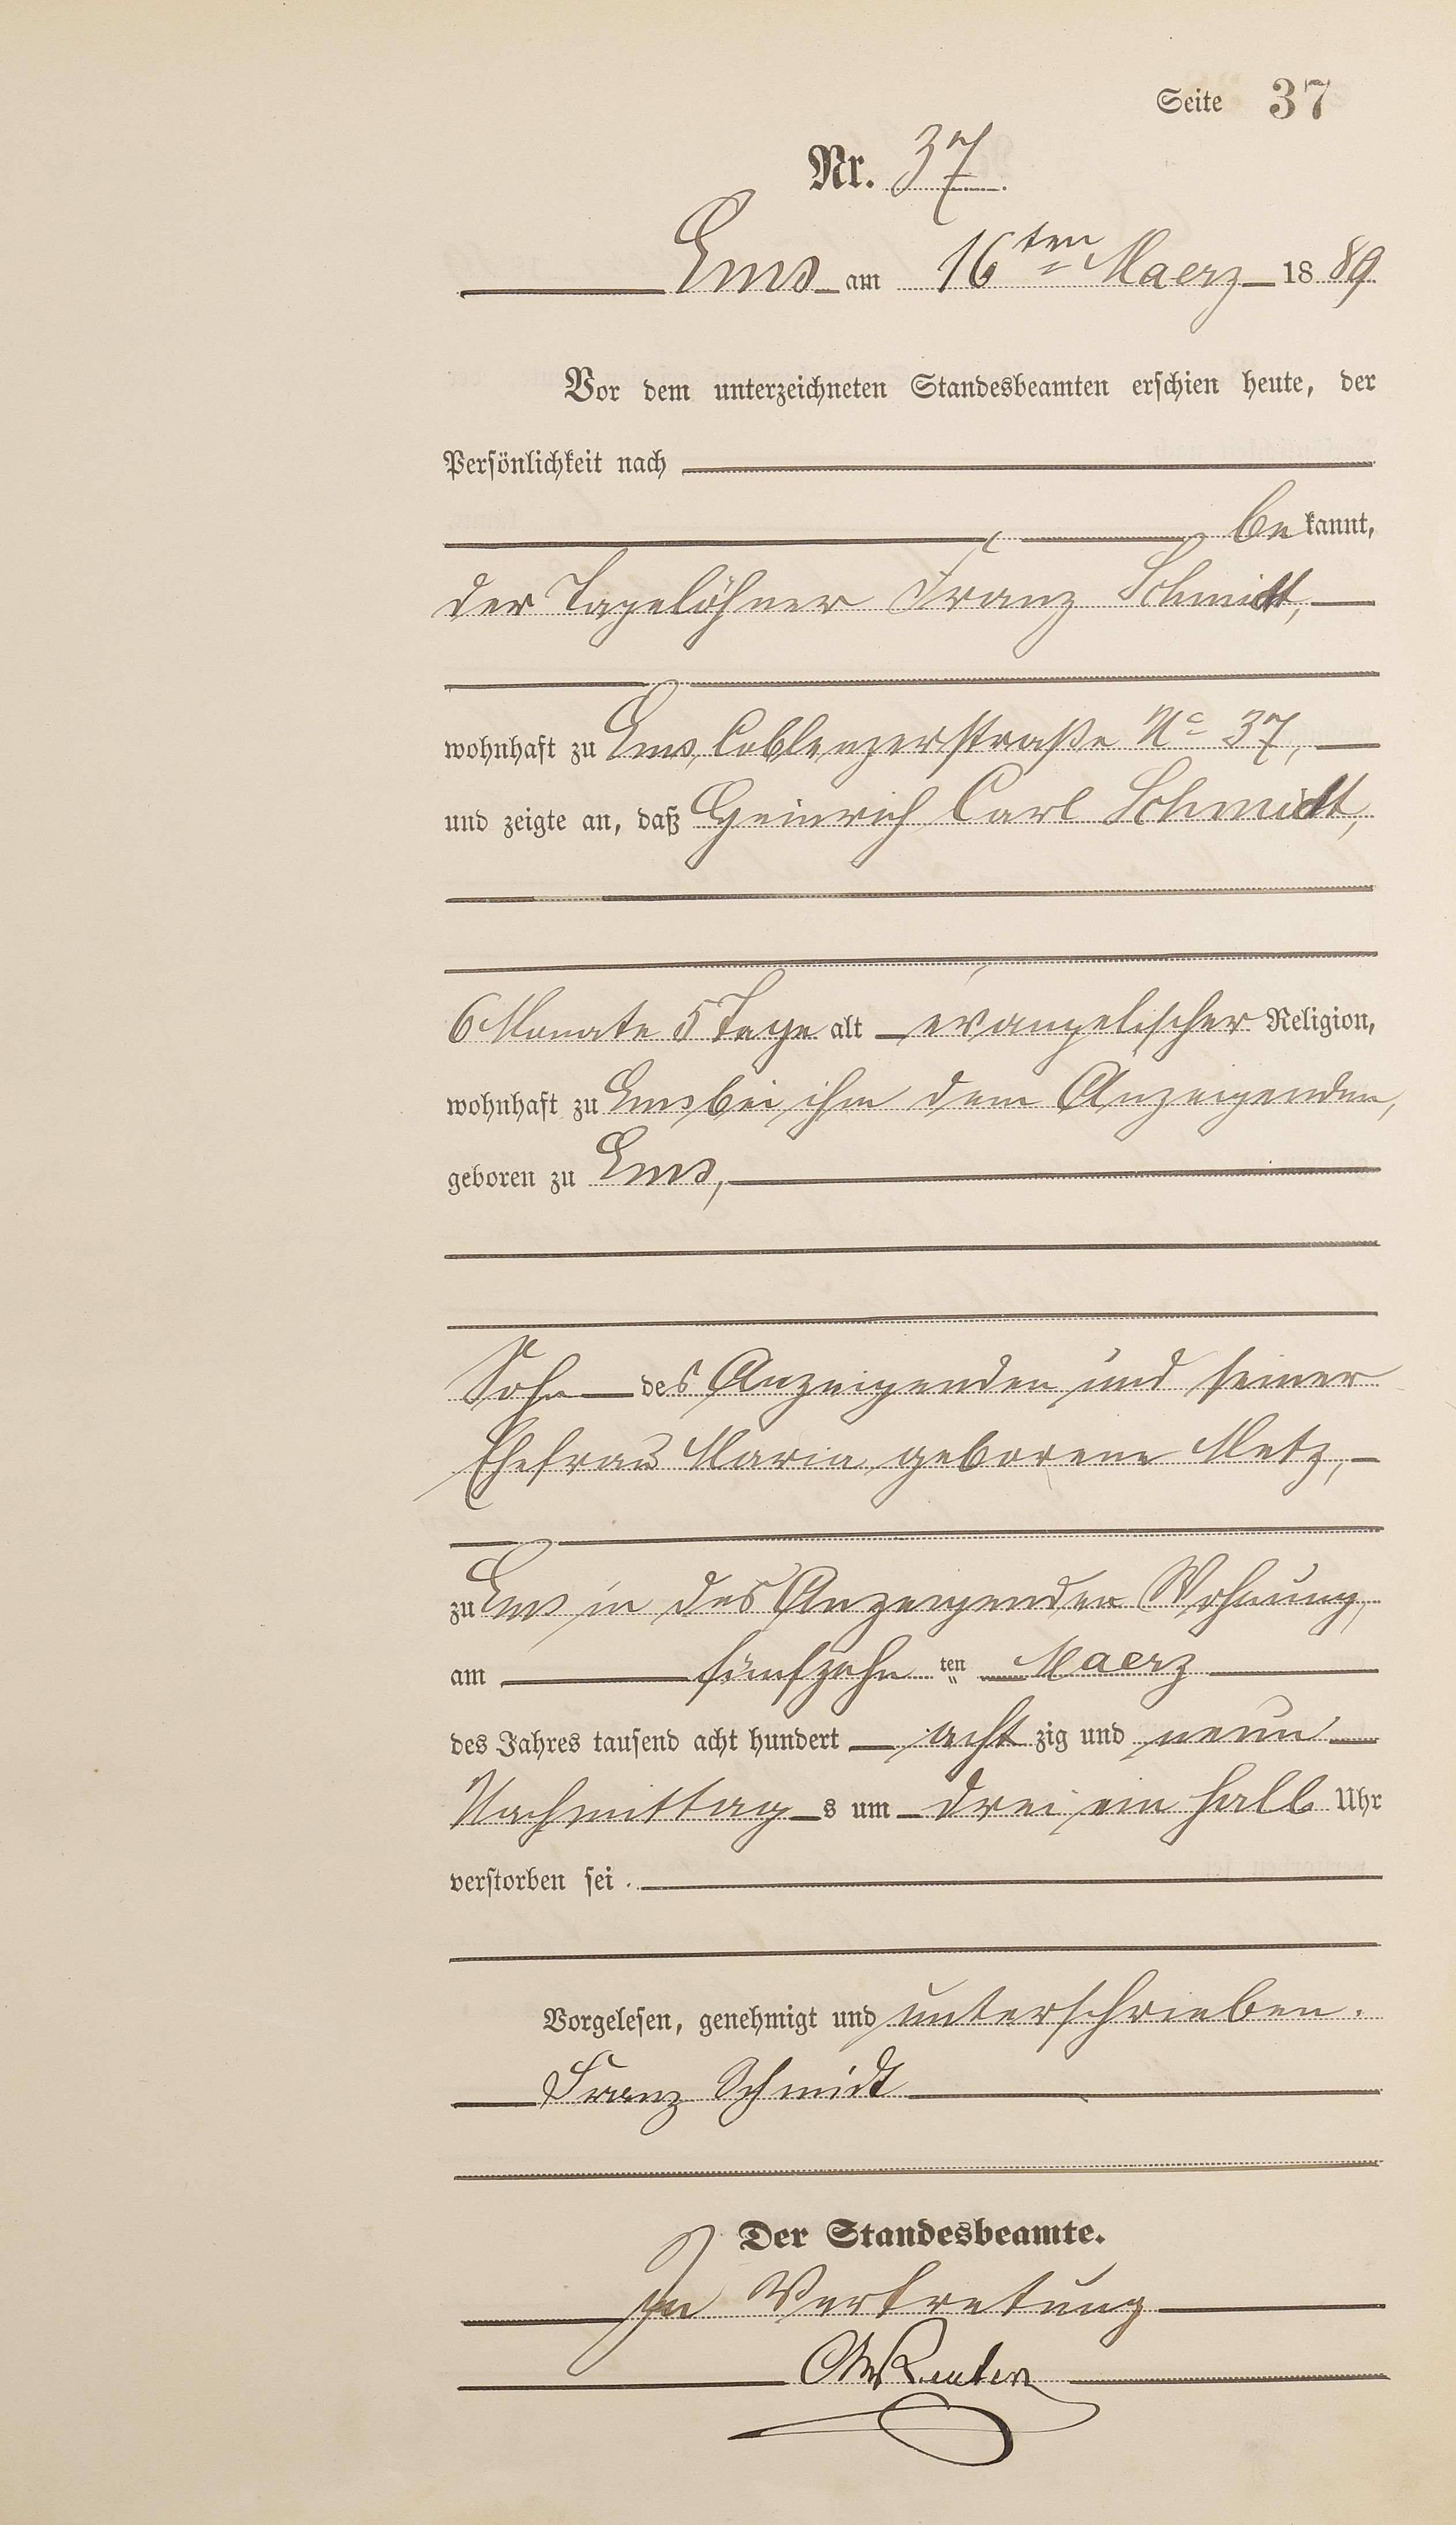 Seite 37
Nr. 37
Ems am 16ten Maerz 1889
Vor dem unterzeichneten Standesbeamten erschien heute, der
Persönlichkeit nach
bekannt,
der Tagelöhner Franz Schmidt,
wohnhaft zu Ems, Coblenzerstraße No 37,
und zeigte an, daß Heinrich Carl Schmidt,
6 Monate 5 Tage alt evangelischer Religion,
wohnhaft zu Ems bei ihm dem Anzeigenden,
geboren zu Ems,
Sohn des Anzeigenden und seiner
Ehefrau Maria geborene Metz,
zu Ems in des Anzeigenden Wohnung,
am fünfzehn ten Maerz
des Jahres tausend acht hundert acht zig und neun
Nachmittag s um drei ein halb Uhr
verstorben sei.
Vorgelesen, genehmigt und unterschrieben.
Franz Schmidt
Der Standesbeamte.
In Vertretung